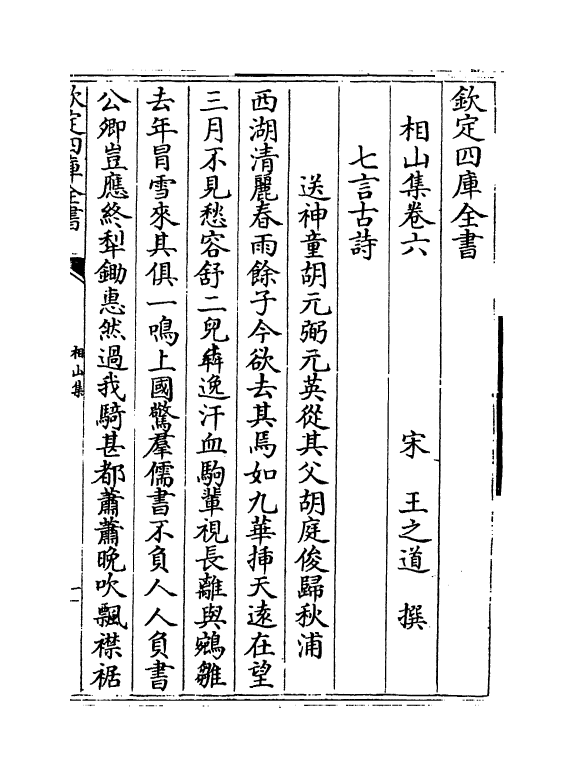 欽定四庫全書
相山集卷六
宋　王之道　撰
七言古詩
送神童胡元弼元英從其父胡庭俊歸秋浦
西湖清麗春雨餘子今欲去其焉如九華揷天遠在望
三月不見愁容舒二兒犇逸汗血駒輩視長離與鵷雛
去年冒雪來其俱一鳴上國驚羣儒書不負人人負書
公卿豈應終犁鋤惠然過我騎甚都蕭蕭晚吹飄襟裾
欽定四庫全書
相山集
一